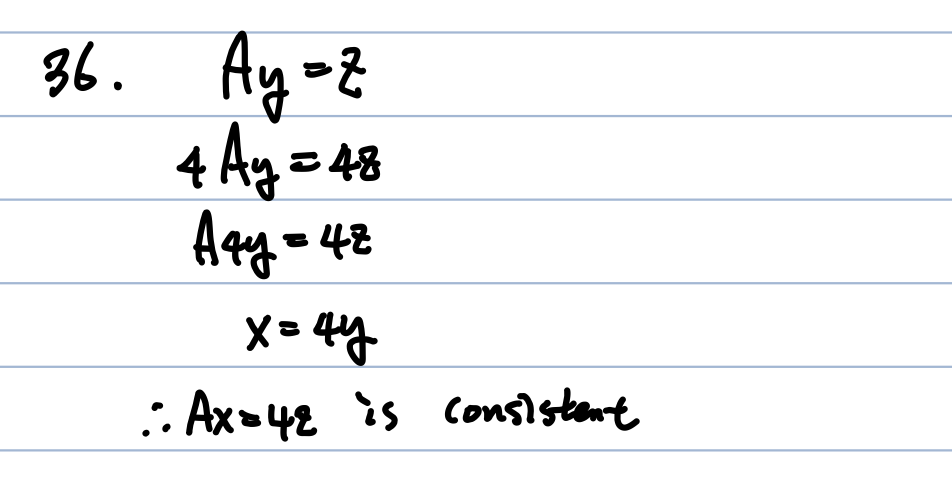 36. Ay = z
4 Ay = 4z
A4y = 4z
x = 4y
∴ Ax = 4z is consistent